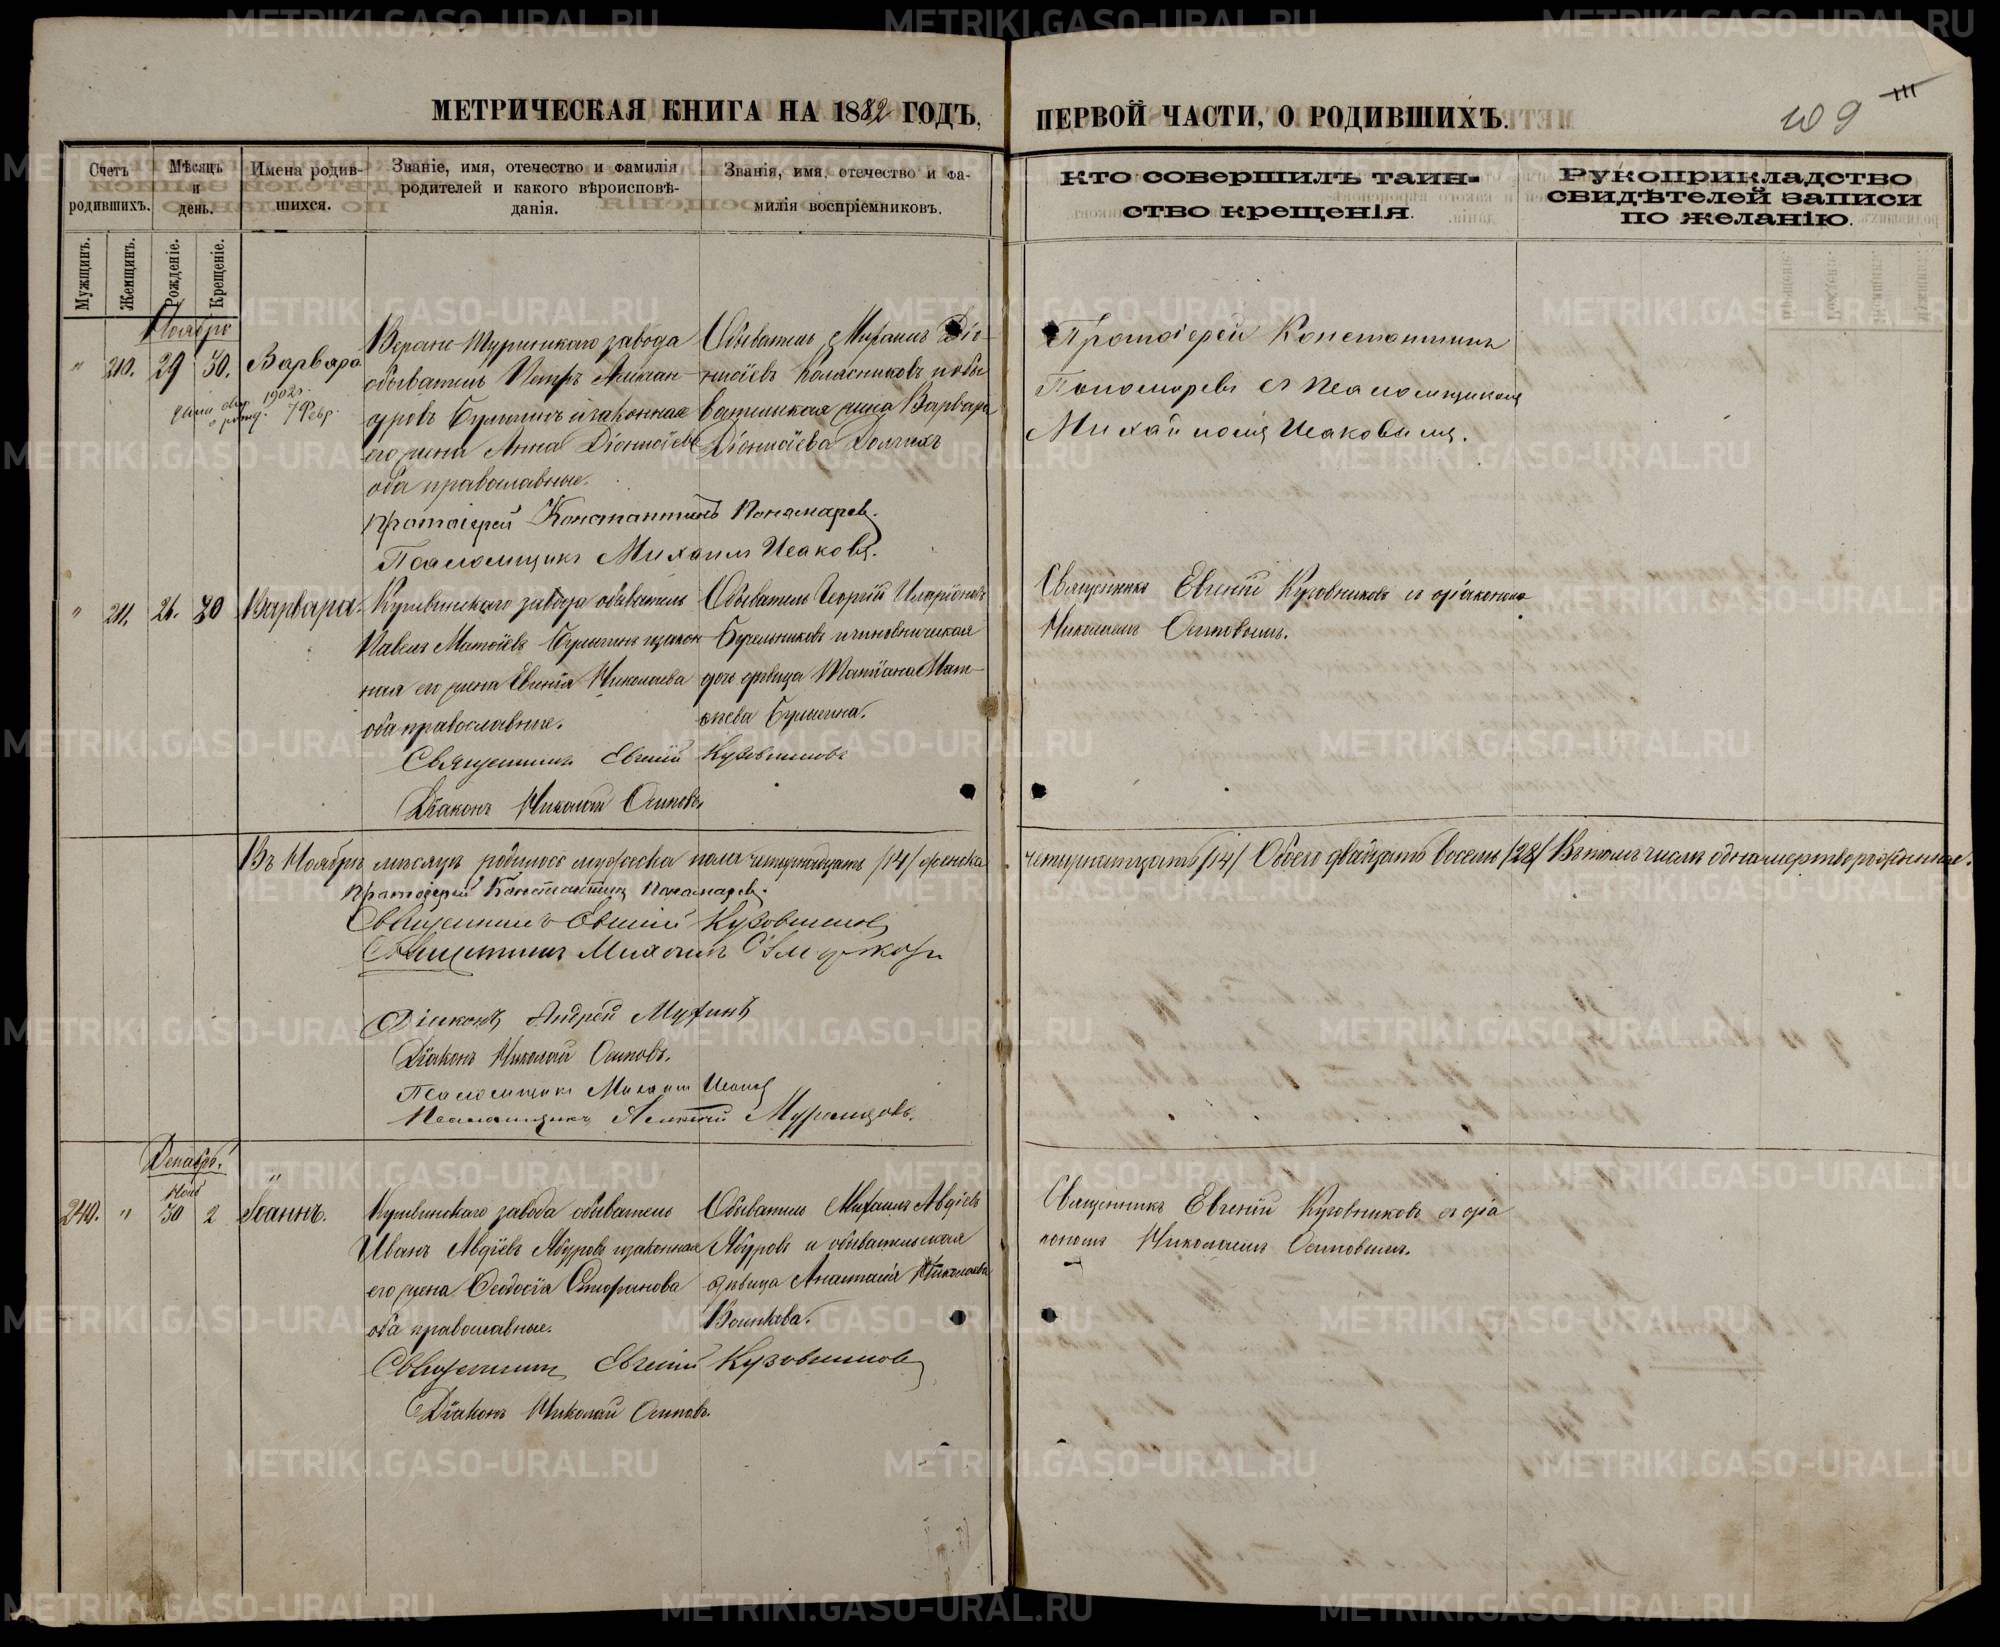 МЕТРИЧЕСКАЯ КНИГА НА 1882 ГОДЪ,
ПЕРВОЙ ЧАСТИ, О РОДИВШИХЪ.
109
Счетъ родившихъ.
Мѣсяцъ и день.
Имена родив-
шихся.
Званіе, имя, отечество и фамилія
родителей и какого вѣроисповѣ-
данія.
Званія, имя, отечество и фа-
милія воспріемниковъ.
Кто совершилъ таин-
ство крещенія.
Рукоприкладство
свидѣтелей записи
по желанію.
Мужщинъ.
Женщинъ.
Рожденіе.
Крещеніе.
Ноябрь
" 210. 29 30. Варвара
1902 г.
7 Февр.
Верхне-Туринскаго завода
обыватель Петръ Алексан-
дровъ и законная
его жена Анна Діонисіева
оба православные.
Обыватель Михаилъ Діо-
нисіевъ Колясниковъ и обы
вательская жена Варвара
Діонисіева Долгихъ
Протоіерей Константинъ
Пономаревъ съ псаломщикомъ
Михаиломъ Исаковымъ.
Протоіерей Константинъ Пономаревъ.
Псаломщикъ Михаилъ Исаковъ.
" 211. 26. 30 Варвара.
Кушвинскаго завода обыватель
Павелъ и закон
ная его жена Евгенія Николаева
оба православные.
Обыватель Георгій Иларіоновъ
и чиновническая
дочь дѣвица Татіана Мат-
Священникъ Евгеній Кузовниковъ съ діакономъ
Николаемъ Осиповымъ.
Священникъ Евгеній Кузовниковъ
Діаконъ Николай Осиповъ
Въ Ноябрѣ мѣсяцѣ родилось мужеска пола четырнадцать /14/ женска
четырнадцать /14/ Обоего двадцать восемь /28/ Въ томъ числѣ одна мертворожденная.
Протоіерей Константинъ Пономаревъ.
Священникъ Евгеній Кузовниковъ
Священникъ Михаилъ
Діаконъ Андрей
Діаконъ Николай Осиповъ.
Псаломщикъ Михаилъ Исаковъ
Псаломщикъ Алексій Муромцовъ.
Декабрь.
240. " Нояб 30 2 Іоаннъ.
Кушвинскаго завода обыватель
Иванъ Авдіевъ Ябуровъ и законная
его жена Ѳеодосія Стефанова
оба православные.
Обыватель Михаилъ Авдіевъ
Ябуровъ и обывательская
дѣвица Анастасія Николаева
Волкова.
Священникъ Евгеній Кузовниковъ съ діа
кономъ Николаемъ Осиповымъ.
Священникъ Евгеній Кузовниковъ
Діаконъ Николай Осиповъ.
METRIKI.GASO-URAL.RU